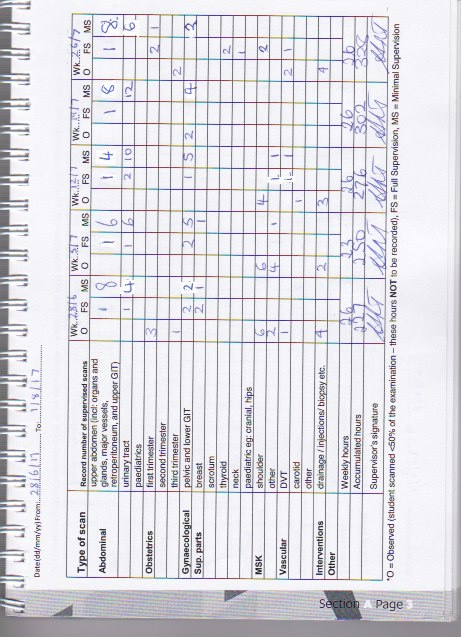 Date(dd/mm/yy) From: 28/6/17 To: 1/8/17
Type of scan Record number of supervised scans Wk. 28/6 Wk. 5/7 Wk. 12/7 Wk. 19/7 Wk. 26/7
O FS MS O FS MS O FS MS O FS MS O FS MS
Abdominal upper abdomen (incl: organs and glands, major vessels, retroperitoneum, and upper GIT) 1 8 1 6 1 4 1 8 1 8
urinary tract 1 4 1 6 2 10 12 6
paediatrics
Obstetrics first trimester 3 2 1
second trimester
third trimester 1 2
Gynaecological pelvic and lower GIT 2 2 2 5 1 5 2 4 3
Sup. parts breast 2 1 1
scrotum
thyroid 2
neck 1
paediatric eg: cranial, hips
MSK shoulder 6 6 4 2
other 2 4 1 1 1
Vascular DVT 1 1 1 2 1
carotid 1
other
Interventions drainage / injections/ biopsy etc. 4 2 3 4
Other
Weekly hours 26 23 26 26 26
Accumulated hours 227 250 276 302 328
Supervisor's signature
*O = Observed (student scanned <50% of the examination – these hours NOT to be recorded), FS = Full Supervision, MS = Minimal Supervision
Section A Page 3